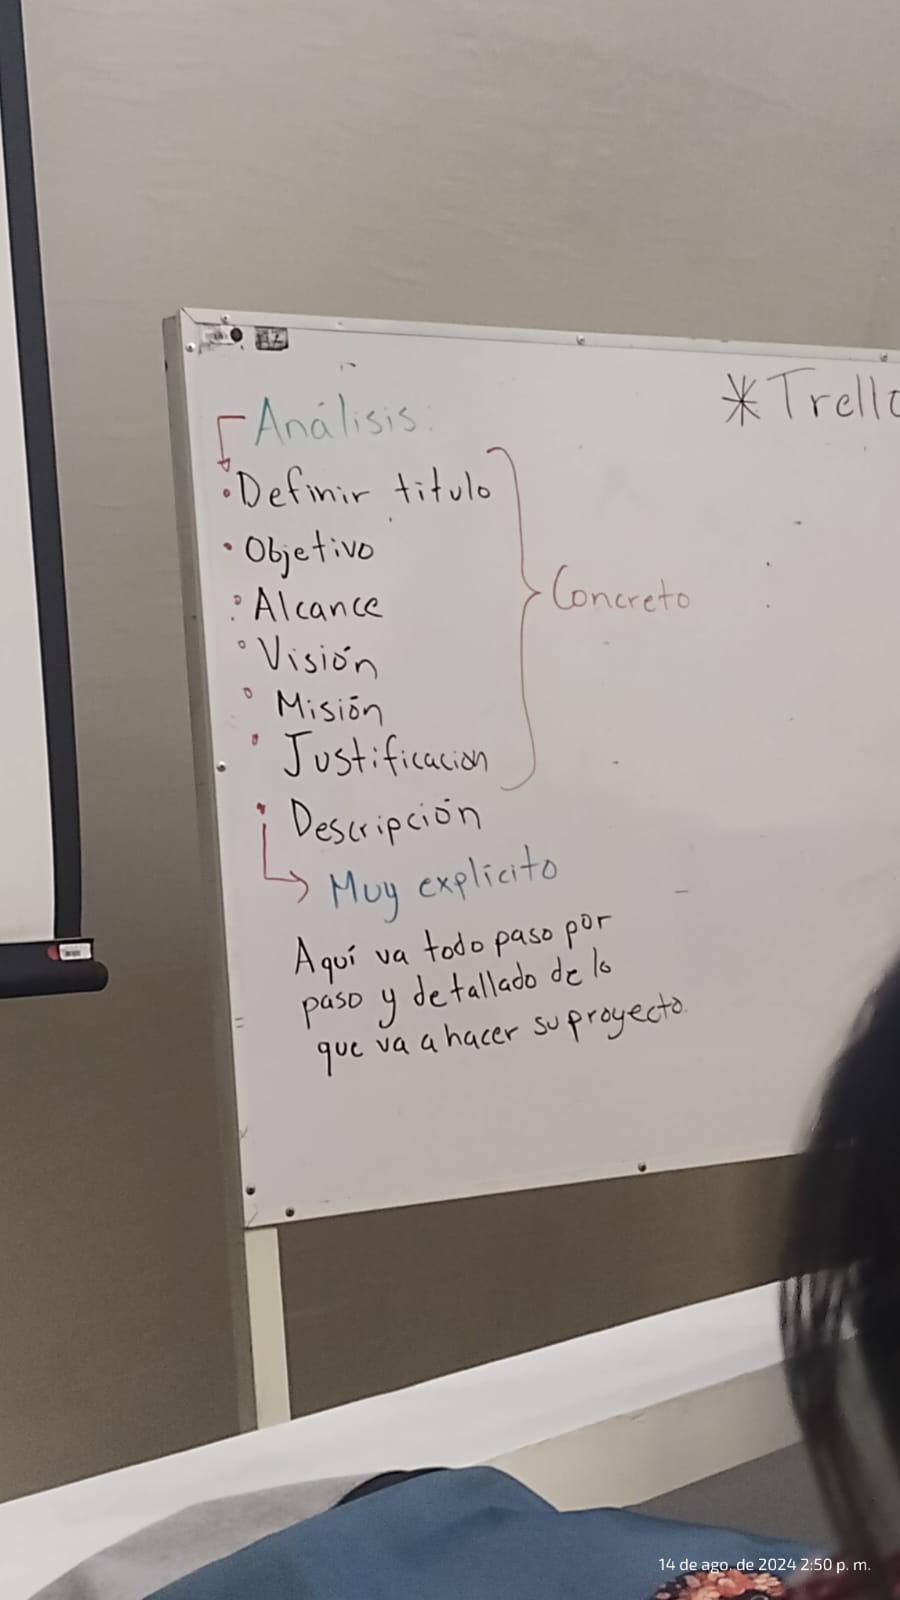 Análisis:
* Trello
• Definir titulo
• Objetivo
• Alcance
• Visión
• Misión
• Justificacion
Concreto
• Descripción
Muy explícito
Aquí va todo paso por
paso y detallado de lo
que va a hacer su proyecto.
14 de ago. de 2024 2:50 p. m.